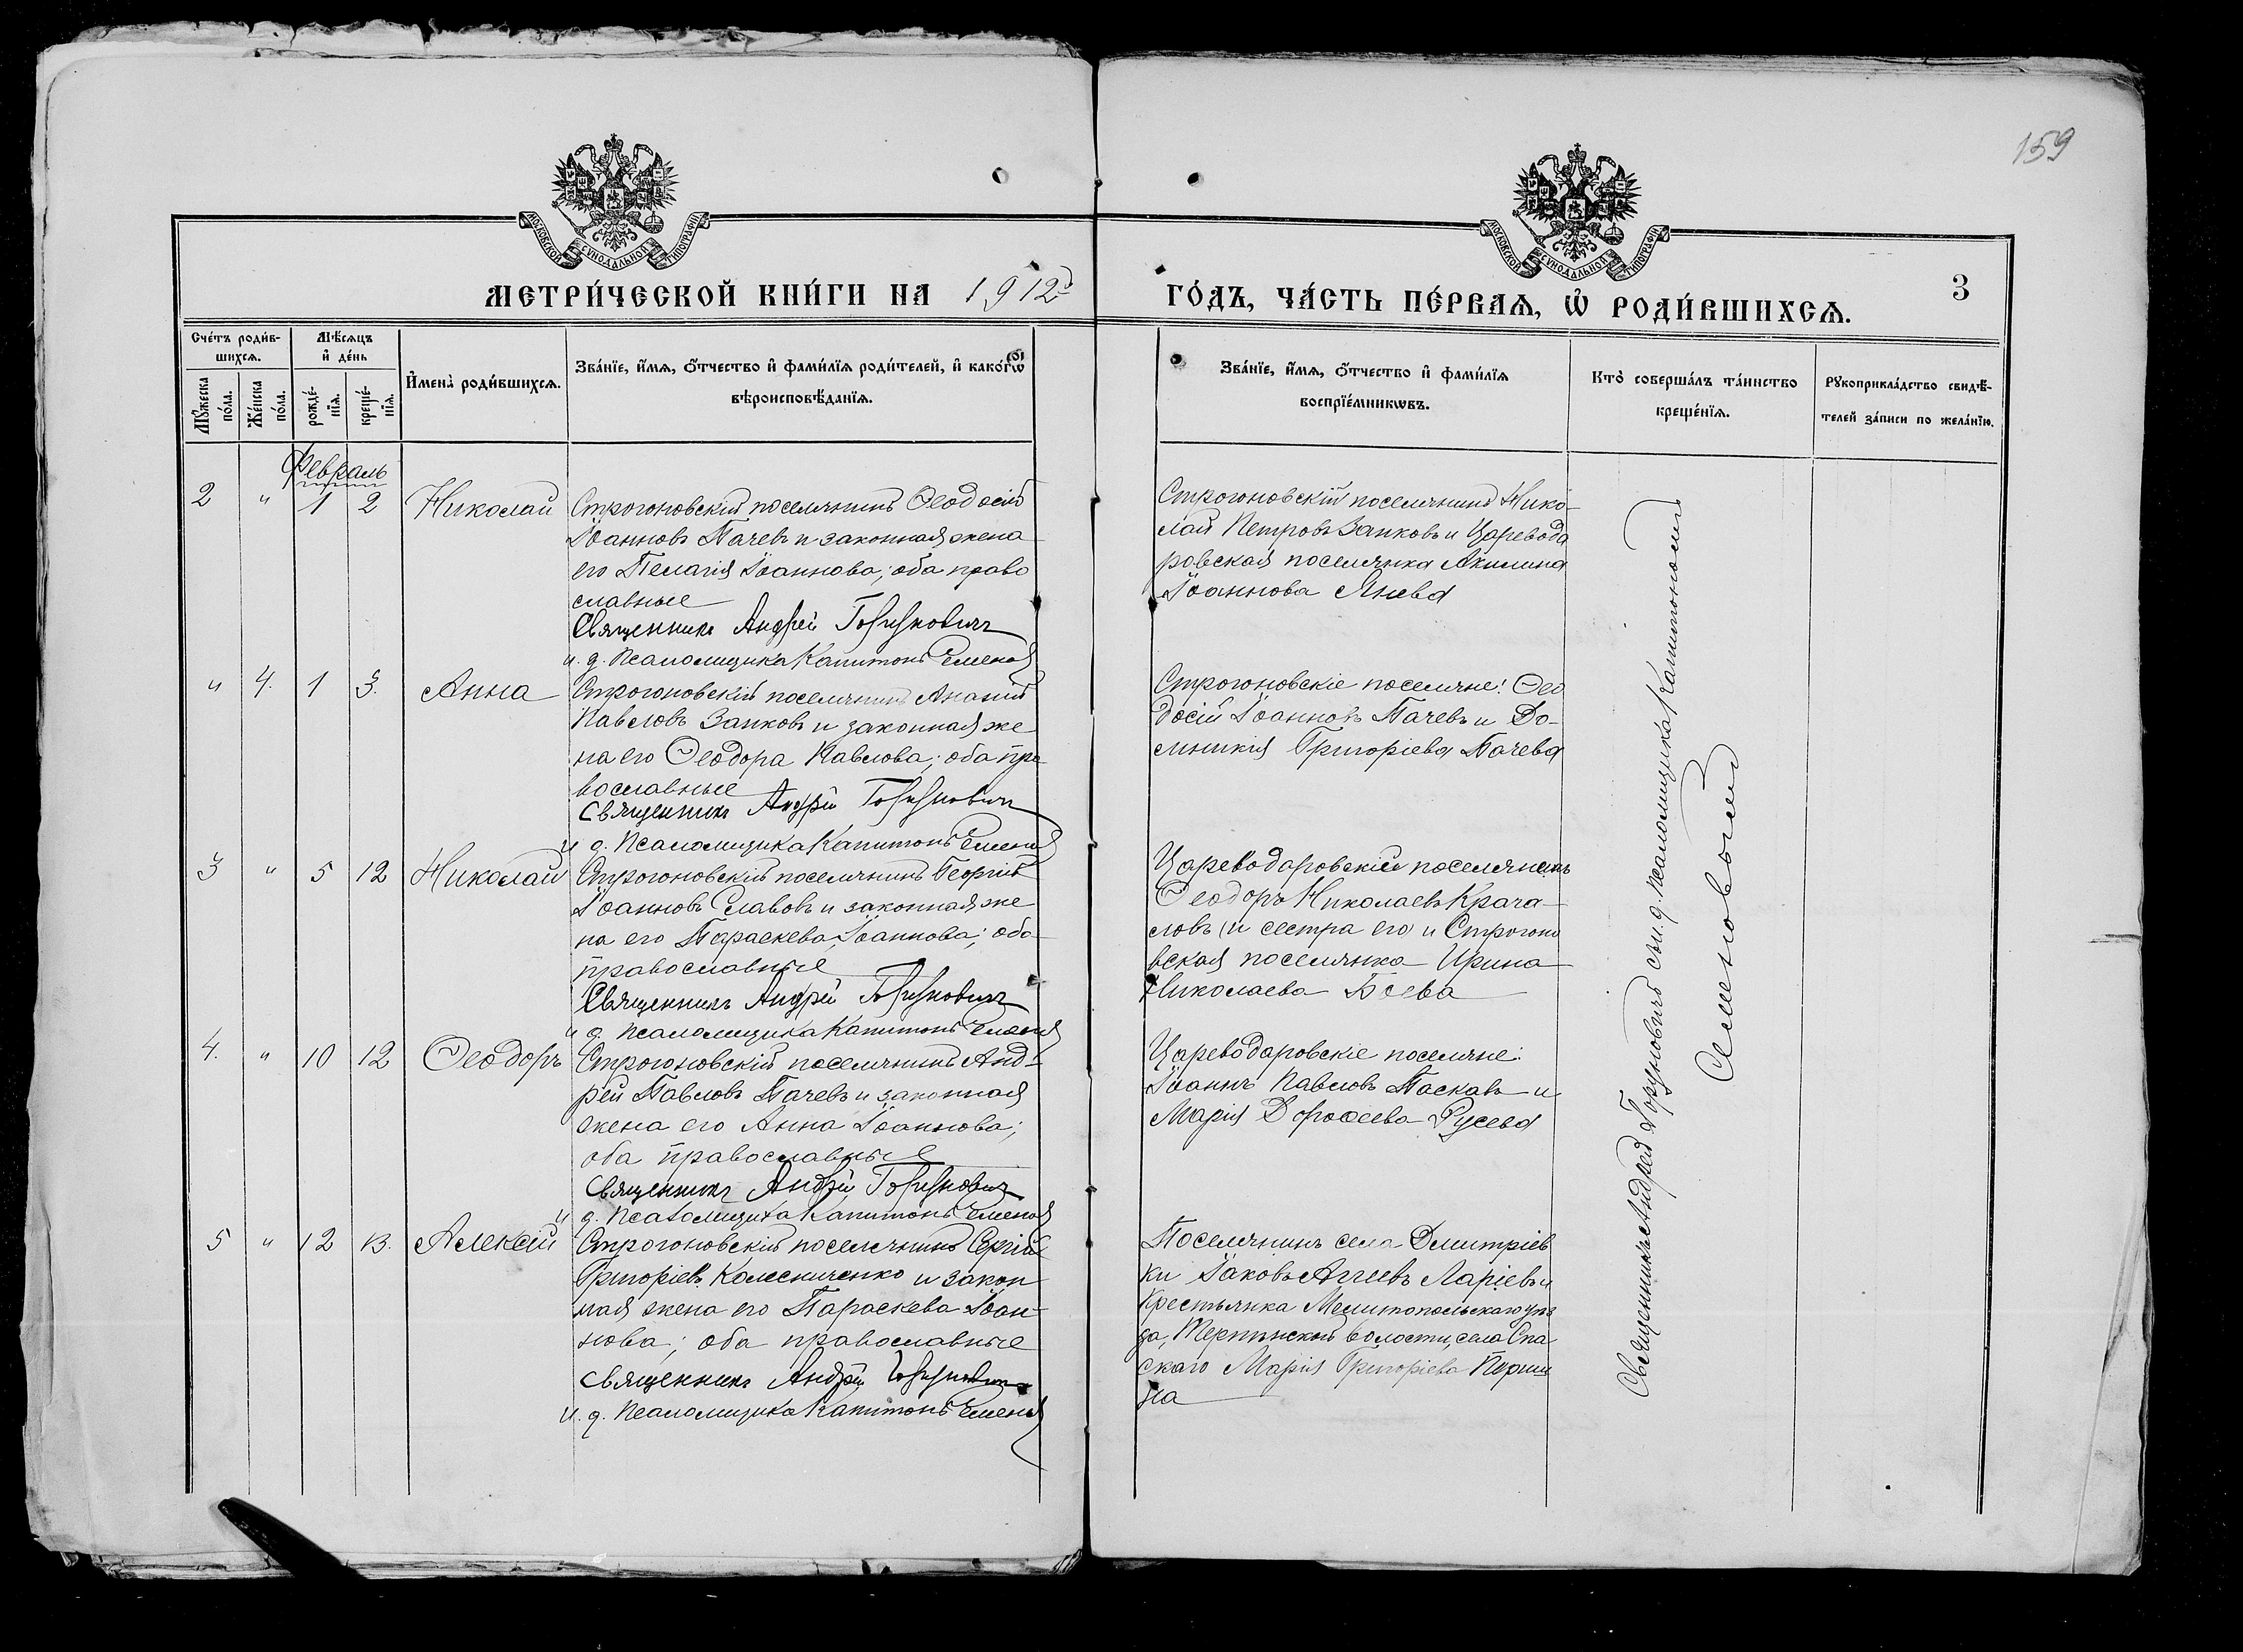 159
МОСКОВСКОЙ СѴНОДАЛЬНОЙ ТИПОГРАФІИ
МОСКОВСКОЙ СѴНОДАЛЬНОЙ ТИПОГРАФІИ
МЕТРИ́ЧЕСКОЙ КНИ́ГИ НА 1912й
ГО́ДЪ, ЧА́СТЬ ПЕ́РВАѦ, Ѽ РОДИ́ВШИХСѦ.
3
Сче́тъ роди́в-
шихсѧ.
Мѣ́сѧцъ
и҆ де́нь
Мꙋ́жеска
по́ла.
Же́нска
по́ла.
рожде́-
нїѧ.
креще́-
нїѧ.
И҆мена̀ роди́вшихсѧ.
Зва́нїе, и҆́мѧ, ѻ҆́тчество и҆ фами́лїѧ роди́телей, и҆ како́гѡ
вѣроисповѣ́данїѧ.
Зва́нїе, и҆́мѧ, ѻ҆́тчество и҆ фами́лїѧ
воспрїе́мникѡвъ.
Кто̀ соверша́лъ та́инство
креще́нїѧ.
Рꙋкоприкла́дство свидѣ́-
телей за́писи по жела́нїю.
Февраль
2 " 1 2 Николай
Строгоновскій поселянинъ Ѳеодосій
Іоанновъ Пачевъ и законная жена
его Пелагія Іоаннова; оба право
славные
Священникъ Андрей Горуновичъ
и. д. Псаломщика Капитонъ Семеновъ
Строгоновскій поселянинъ Нико-
лай Петровъ Занковъ и Царевода
ровская поселянка Акилина
Іоаннова Янева
" 4. 1 3. Анна
Строгоновскій поселянинъ Ананій
Павловъ Занковъ и законная же
на его Ѳеодора Павлова; оба пра-
вославные
Священникъ Андрей Горуновичъ
и д. Псаломщика Капитонъ Семеновъ
Строгоновскіе поселяне: Ѳео
досій Іоанновъ Пачевъ и До-
мникія Григоріева Пачева
3 " 5 12 Николай
Строгоновскій поселянинъ Георгій
Іоанновъ Славовъ и законная же
на его Параскева Іоаннова; оба
православные
Священникъ Андрей Горуновичъ
и д. Псаломщика Капитонъ Семеновъ
Цареводаровскій поселянинъ
Ѳеодоръ Николаевъ Крача
словъ (и сестра его) и Строгоно
вская поселянка Ирина
Николаева Боева
4. " 10 12 Ѳеодоръ
Строгоновскій поселянинъ Анд-
рей Павловъ Пачевъ и законная
жена его Анна Іоаннова;
оба православные
Священникъ Андрей Горуновичъ
и д. Псаломщика Капитонъ Семеновъ
Цареводаровскіе поселяне:
Іоаннъ Павловъ Паскавъ и
Марія Дороѳеева Русева
5 " 12 13. Алексѣй
Строгоновскій поселянинъ Сергій
Григоріевъ Колесниченко и закон
ная жена его Параскева Іоан-
нова; оба православные
Священникъ Андрей Горуновичъ
и. д. Псаломщика Капитонъ Семеновъ
Поселянинъ села Дмитріев
ки Іаковъ Агеевъ Ларіевъ и
крестьянка Мелитопольскаго уѣз
да, Терпѣнской волости, села Спа
скаго Марія Григоріева
на
Священникъ Андрей Горуновичъ съ и. д. псаломщика Капитономъ
Семеновымъ